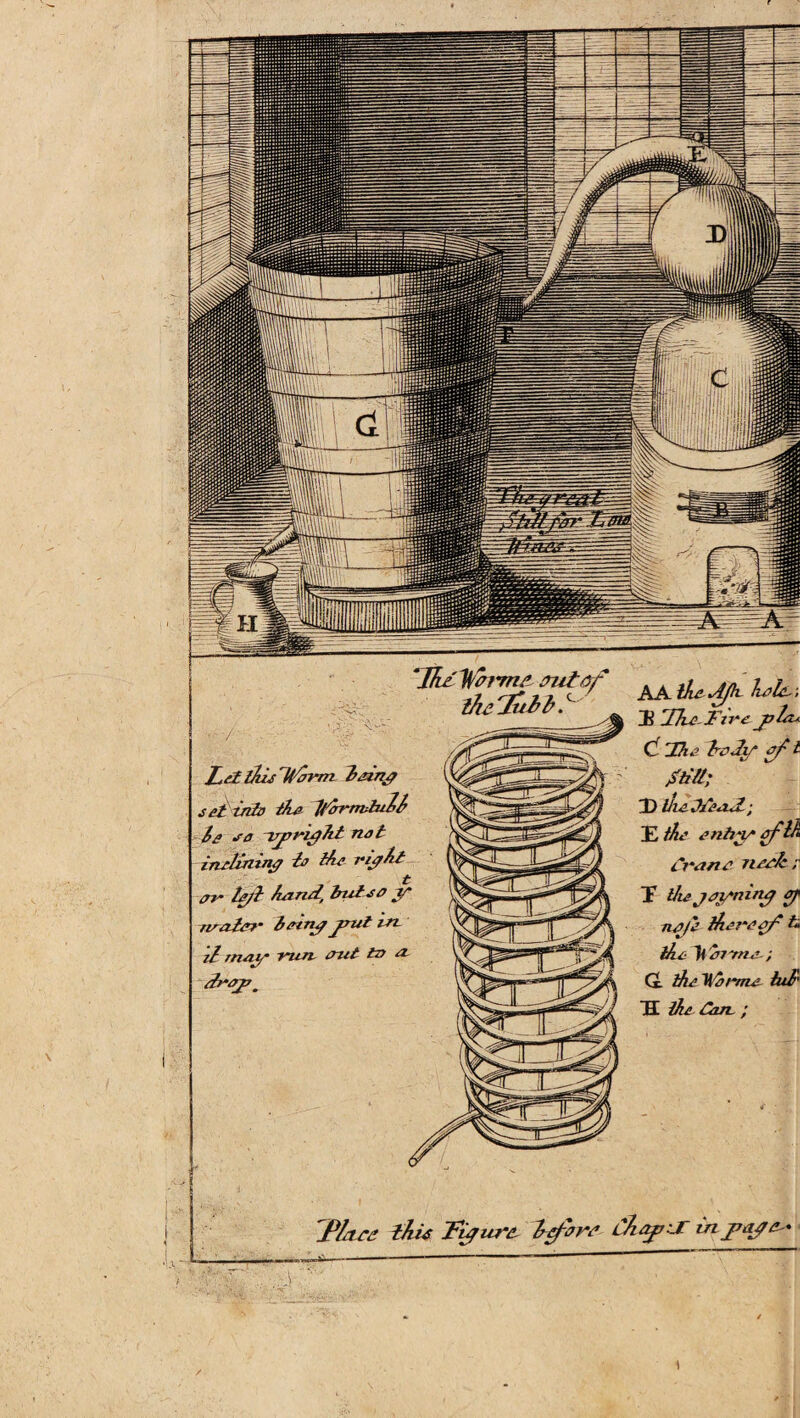 E
D
F
C
G
The great
Still for Low
Wines.
B
H
A A
The Worme out of
the Tubb.
Let this Worm being
set into the Wormtubb
be so vpright not
inclining to the right
or left hand, but so yt
water being put in
it may run out to a
drop.
AA the Ash hole;
B The Fire pla
C The body of t
Still;
D the Head;
E the entry of th
Crane neck;
F the joyning of
nose thereof t
the Worme;
G the Worme tub
H the Can;
Place this Figure before Chap:I in page